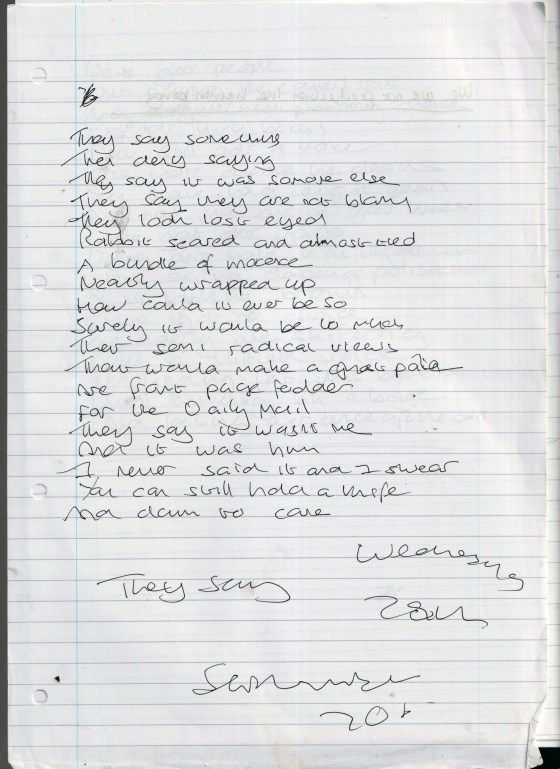 They say something
Then deny saying
They say it was someone else
They say they are not
They look lost eyed
Rabbit scared and almost tied
A bundle of
Neatly wrapped up
How could it ever be so
Surely it would be to much
Their semi radical views
That would make a great
Are front page fodder
For the Daily Mail
They say it wasn't me
And it was him
I never said it and I swear
You can still hold a
And claim to care
They Say
Wednesday
28th
September